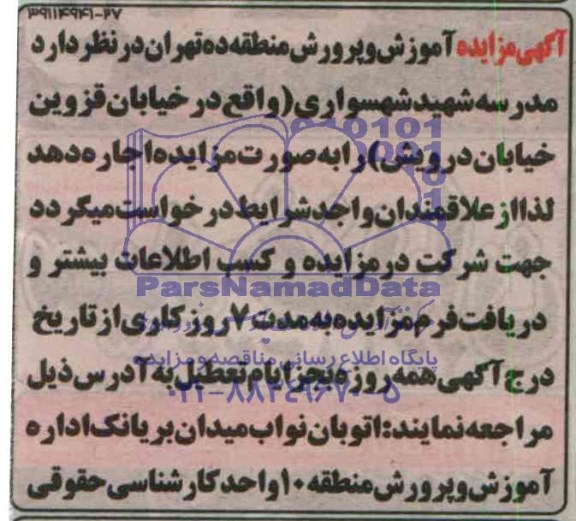 آگهی مزایده آموزش وپرورش منطقه ده تهران در نظر دارد
مدرسه شهید شهسواری (واقع در خیابان قزوین
خیابان درویش) را به صورت مزایده اجاره دهد
لذا از علاقمندان واجد شرایط در خواست میگردد
جهت شرکت در مزایده و کسب اطلاعات بیشتر و
ParsNamadData
دریافت فرم مزایده به مدت ۷ روز کاری از تاریخ
پایگاه اطلاع رسانی مناقصه و مزایده
درج آگهی همه روزه بجز ایام تعطیل به آدرس ذیل
۰۲۱-۸۸۳۴۹۶۷۰-۵
مراجعه نمایند: اتوبان نواب میدان بریانک اداره
آموزش وپرورش منطقه ۱۰ واحد کارشناسی حقوقی